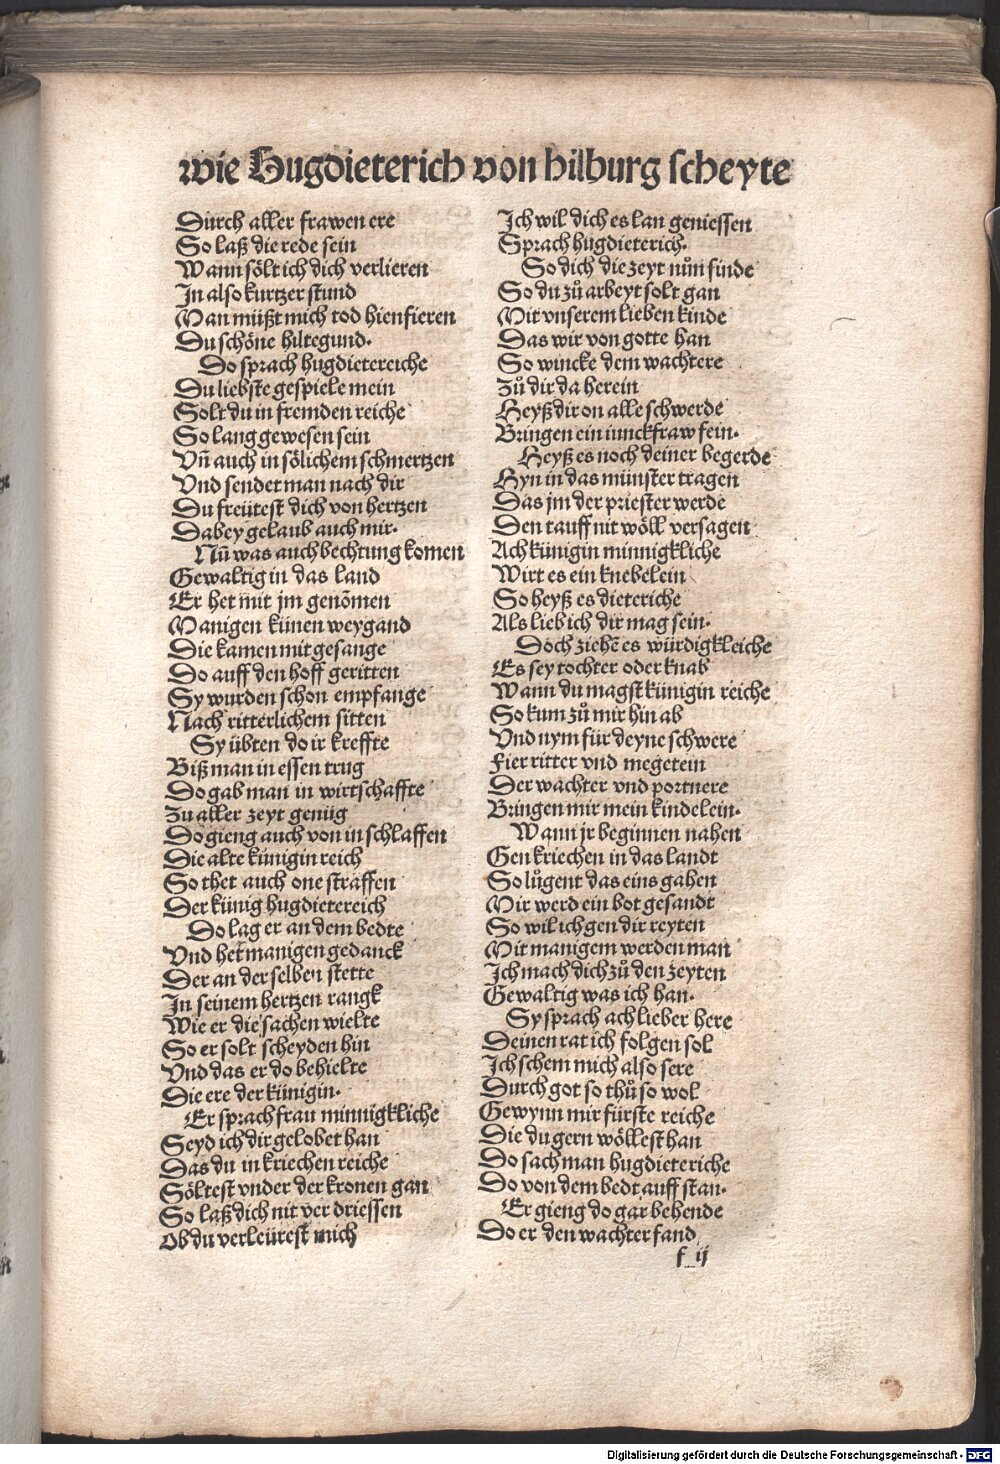 wie Hugdieterich von hilburg scheyte
Durch aller frawen ere
So laß die rede sein
Wann sölt ich dich verlieren
In also kurtzer stund
Man müßt mich tod hienfieren
Du schöne hiltegund.
Do sprach hugdietereiche
Du liebste gespiele mein
Solt du in fremden reiche
So lang gewesen sein
Vñ auch in sölichem schmertzen
Vnd sendet man nach dir
Du freütest dich von hertzen
Dabey gelaub auch mir.
Nũ was auch bechtung komen
Gewaltig in das land
Er het mit jm genõmen
Manigen künen weygand
Die kamen mit gesange
Do auff den hoff geritten
Sy wurden schon empfange
Nach ritterlichem sitten
Sy übten do ir kreffte
Biß man in essen trug
Do gab man in wirtschaffte
Zu aller zeyt genüg
Do gieng auch von in schlaffen
Die alte künigin reich
So thet auch one straffen
Der künig hugdietereich
Do lag er an dem bedte
Vnd het manigen gedanck
Der an der selben stette
In seinem hertzen rangk
Wie er die sachen wielte
So er solt scheyden hin
Vnd das er do behielte
Die ere der künigin.
Er sprach frau minnigkliche
Seyd ich dir gelobet han
Das du in kriechen reiche
Söltest vnder der kronen gan
So laß dich nit ver driessen
Ob du verleürest mich
Ich wil dich es lan geniessen
Sprach hugdieterich.
So dich die zeyt nůn finde
So du zů arbeyt solt gan
Mit vnserem lieben kinde
Das wir von gotte han
So wincke dem wachtere
Zů dir da herein
Heyß dir on alle schwerde
Bringen ein iunckfraw fein.
Heyß es noch deiner begerde
Hyn in das münster tragen
Das jm der priester werde
Den tauff nit wöll versagen
Ach künigin minnigkliche
Wirt es ein knebelein
So heyß es dieteriche
Als lieb ich dir mag sein.
Doch ziehẽ es würdigkleiche
Es sey tochter oder knab
Wann du magst künigin reiche
So kum zů mir hin ab
Vnd nym für deyne schwere
Fier ritter vnd megetein
Der wachter vnd portnere
Bringen mir mein kindelein.
Wann jr beginnen nahen
Gen kriechen in das landt
So lůgent das eins gahen
Mir werd ein bot gesandt
So wil ich gen dir reyten
Mit manigem werden man
Ich mach dich zů den zeyten
Gewaltig was ich han.
Sy sprach ach lieber here
Deinen rat ich folgen sol
Ich schem mich also sere
Durch got so thů so wol
Gewynn mir fürste reiche
Die du gern wöllest han
Do sach man hugdieteriche
Do von dem bedt auff stan.
Er gieng do gar behende
Do er den wachter fand
f ij
Digitalisierung gefördert durch die Deutsche Forschungsgemeinschaft - DFG